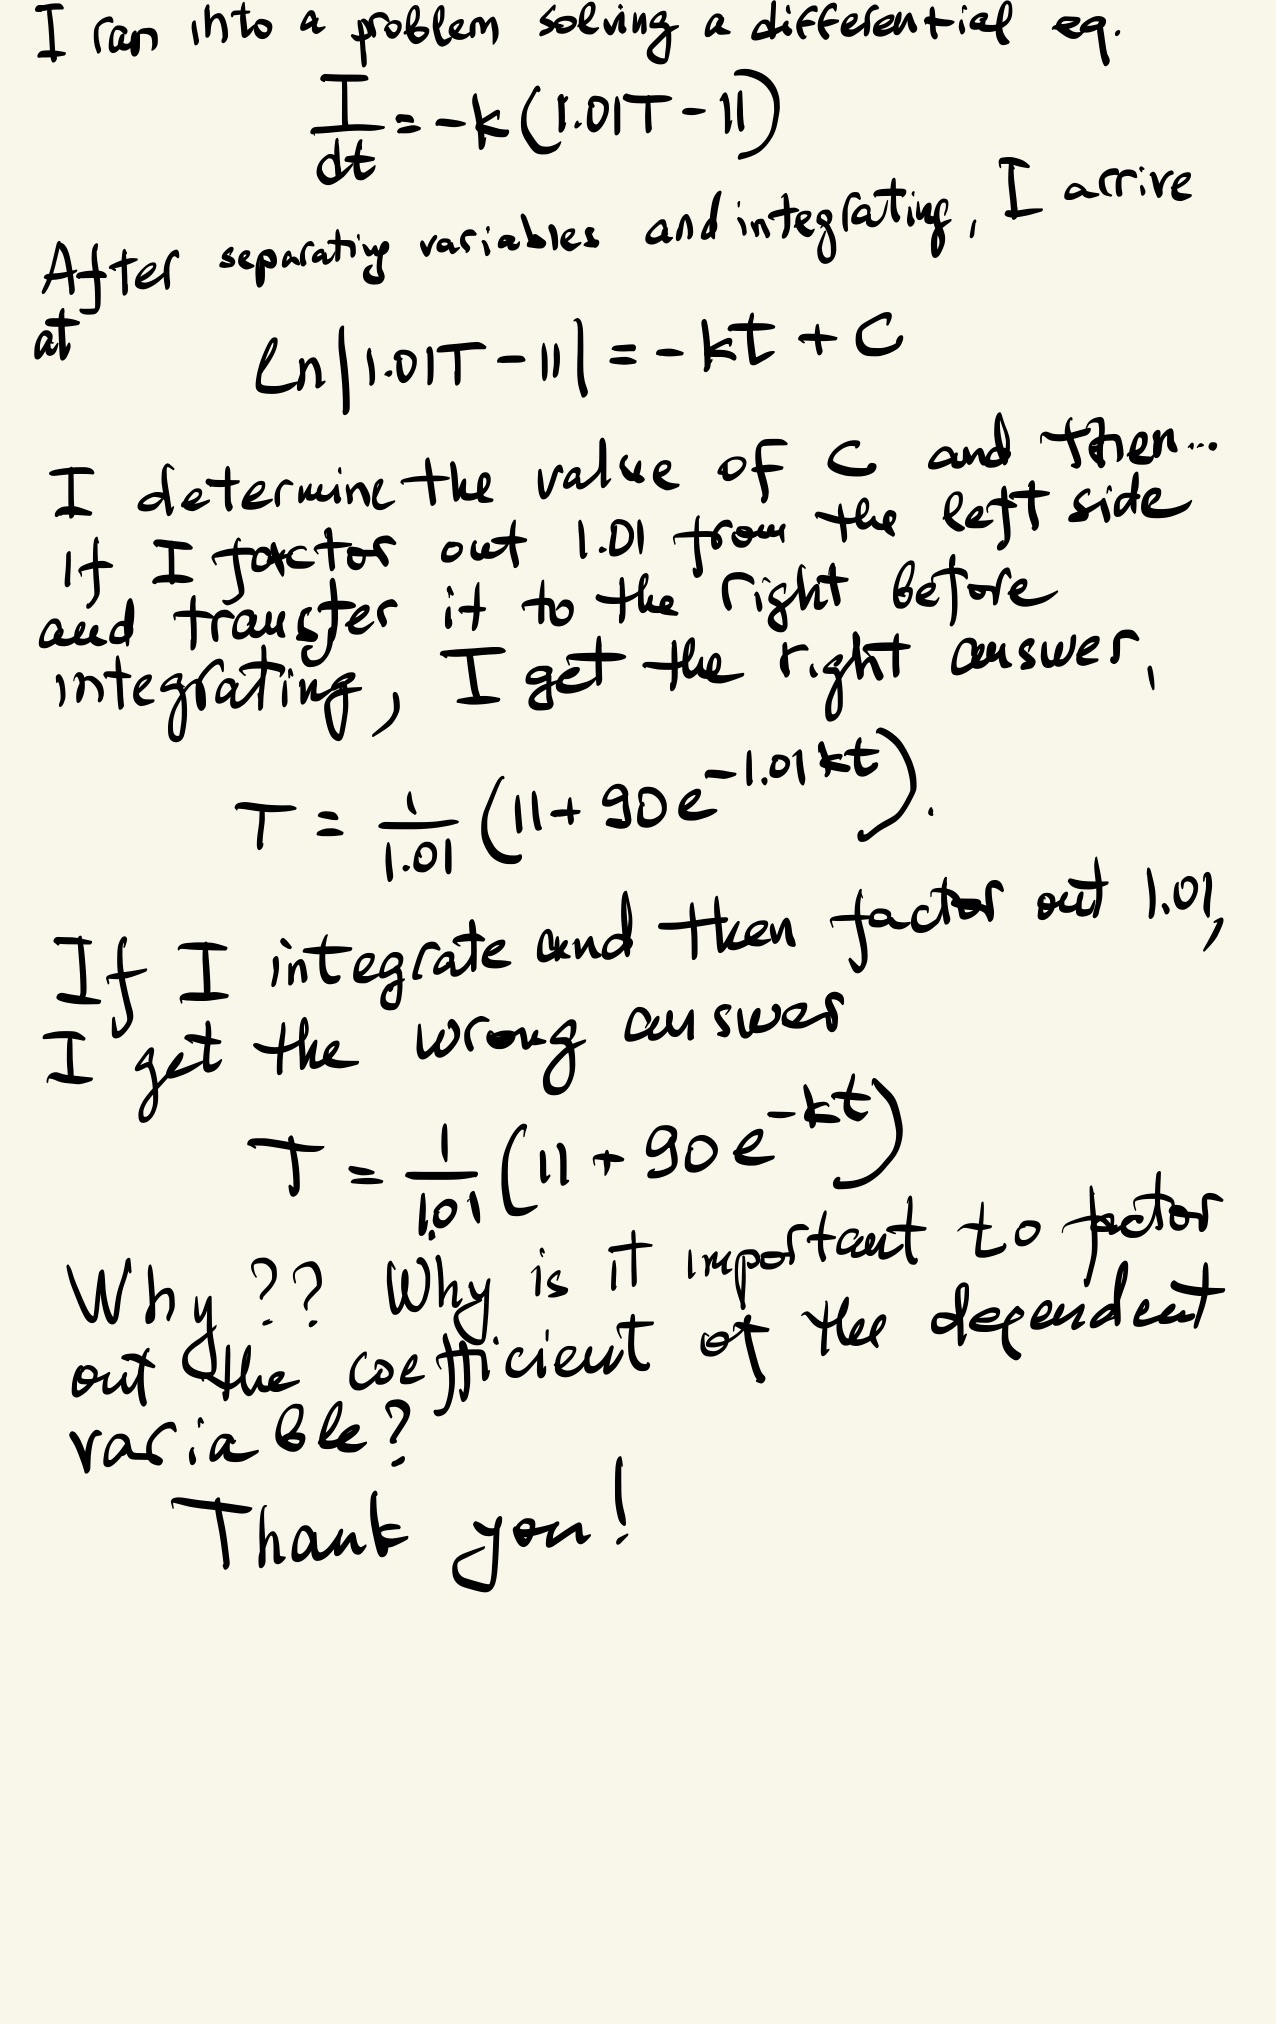 I ran into a problem solving a differential eq.
I/dt = -k(1.01T - 11)
After separating variables and integrating, I arrive
at
ln|1.01T - 11| = -kt + C
I determine the value of C and then...
If I factor out 1.01 from the left side
and transfer it to the right before
integrating, I get the right answer,
T = 1/1.01 (11 + 90e^-1.01kt).
If I integrate and then factor out 1.01,
I get the wrong answer
T = 1/1.01 (11 + 90e^-kt)
Why?? Why is it important to factor
out the coefficient of the dependent
variable?
Thank you!